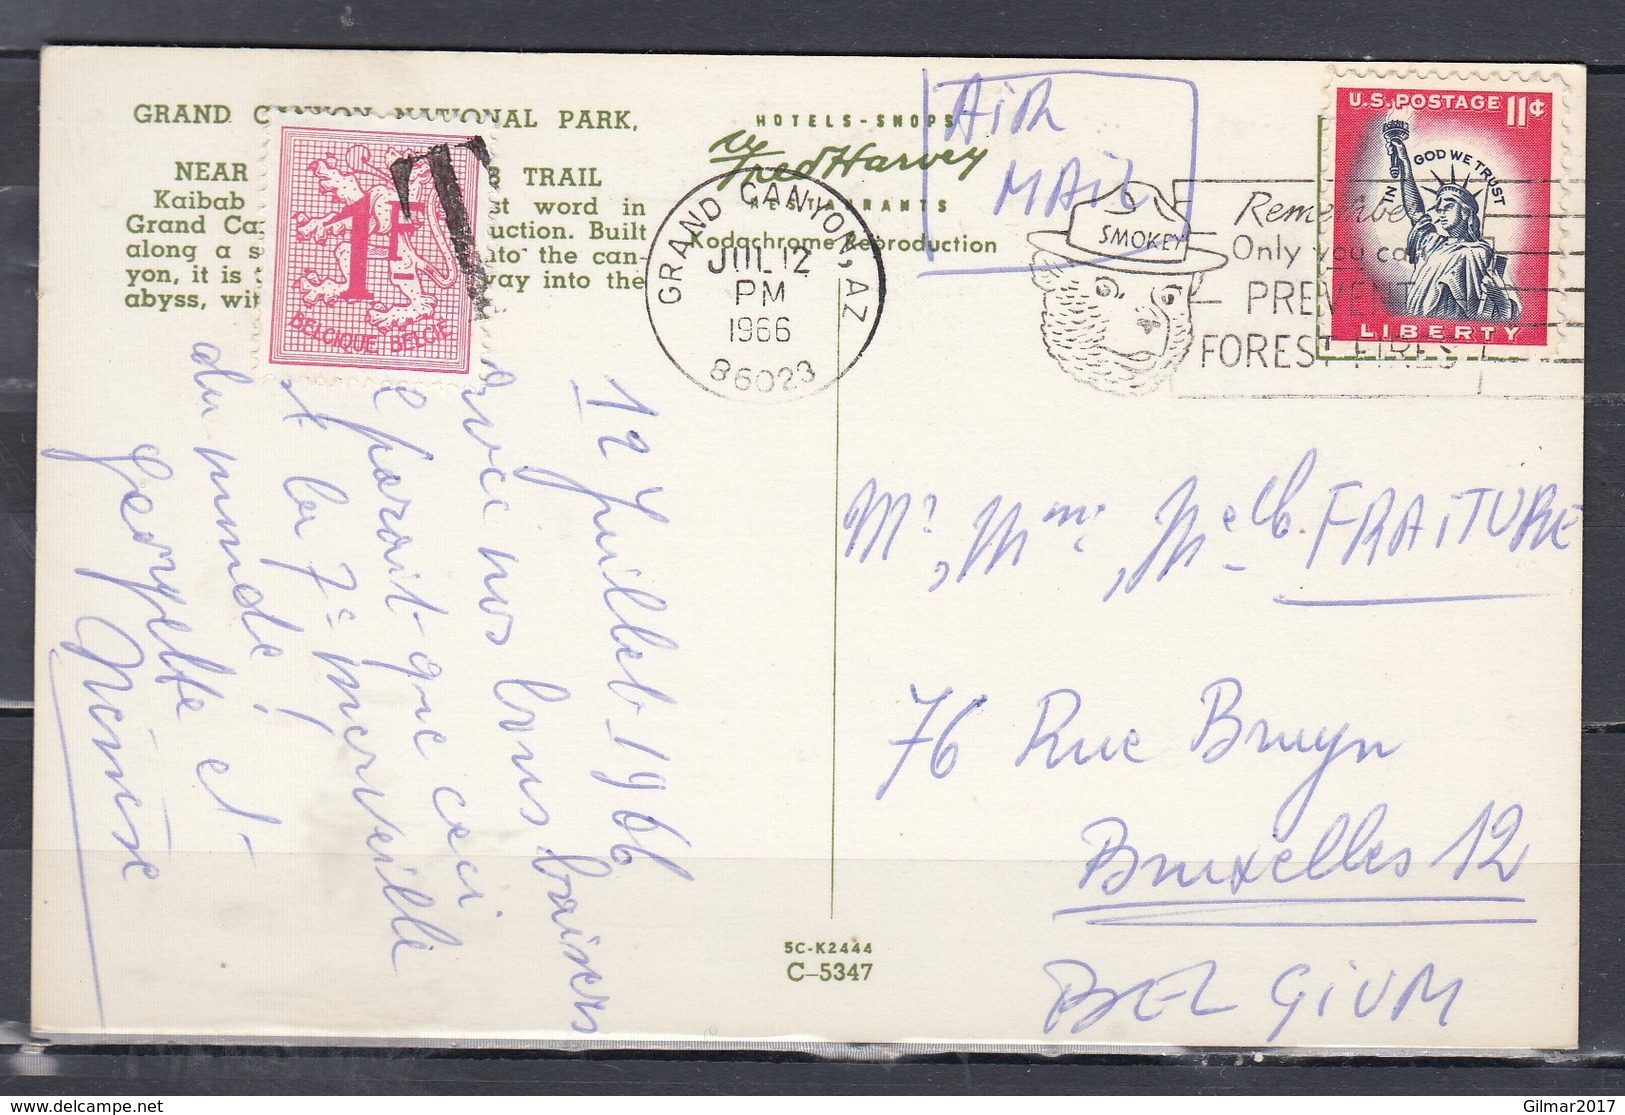 GRAND CANYON NATIONAL PARK,
NEAR TRAIL
Kaibab st word in
Grand Ca uction. Built
along a s nto the can-
yon, it is t way into the
abyss, wit
1F
BELGIQUE BELGIË
T
HOTELS-SHOPS
Fred Harvey
RESTAURANTS
Kodachrome Reproduction
GRAND CANYON, AZ
JUL 12
PM
1966
86023
AiR
MAiL
SMOKEY
Remember
Only you can
PREVENT
FOREST FIRES
U.S. POSTAGE 11¢
IN GOD WE TRUST
LIBERTY
12 Juillet 1966
Avec nos bons baisers
Il paraît que ceci
est la 7e merveille
du monde!
Georgette et
Mr, Mme, Melle. FRAiTURE
76 Rue Bruyn
Bruxelles 12
BELGiUM
5C-K2444
C-5347
Gilmar2017